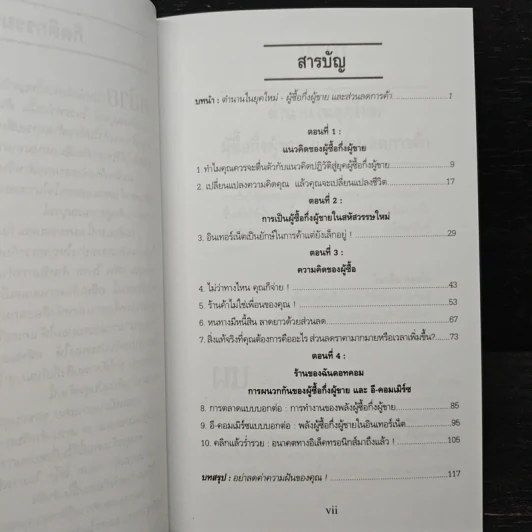 สารบัญ
บทนำ : ตำนานในยุคใหม่ - ผู้ซื้อกึ่งผู้ขาย และส่วนลดการค้า 1
ตอนที่ 1 :
แนวคิดของผู้ซื้อกึ่งผู้ขาย
1. ทำไมคุณควรจะตื่นตัวกับแนวคิดปฏิวัติสู่ยุคผู้ซื้อกึ่งผู้ขาย 9
2. เปลี่ยนแปลงความคิดคุณ แล้วคุณจะเปลี่ยนแปลงชีวิต 17
ตอนที่ 2 :
การเป็นผู้ซื้อกึ่งผู้ขายในสหัสวรรษใหม่
3. อินเทอร์เน็ตเป็นยักษ์ในการค้าแต่ยังเล็กอยู่ ! 29
ตอนที่ 3 :
ความคิดของผู้ซื้อ
4. ไม่ว่าทางไหน คุณก็จ่าย ! 43
5. ร้านค้าไม่ใช่เพื่อนของคุณ ! 53
6. หนทางมีหนี้สิน ลาดยาวด้วยส่วนลด 67
7. สิ่งแท้จริงที่คุณต้องการคืออะไร ส่วนลดราคามากมายหรือเวลาเพิ่มขึ้น? 73
ตอนที่ 4 :
ร้านของฉันดอทคอม
การผนวกกันของผู้ซื้อกึ่งผู้ขาย และ อี-คอมเมิร์ซ
8. การตลาดแบบบอกต่อ : การทำงานของพลังผู้ซื้อกึ่งผู้ขาย 85
9. อี-คอมเมิร์ซแบบบอกต่อ : พลังผู้ซื้อกึ่งผู้ขายในอินเทอร์เน็ต 95
10. คลิกแล้วร่ำรวย : อนาคตทางอิเล็คทรอนิกส์มาถึงแล้ว ! 105
บทสรุป : อย่าลดค่าความฝันของคุณ ! 117
vii